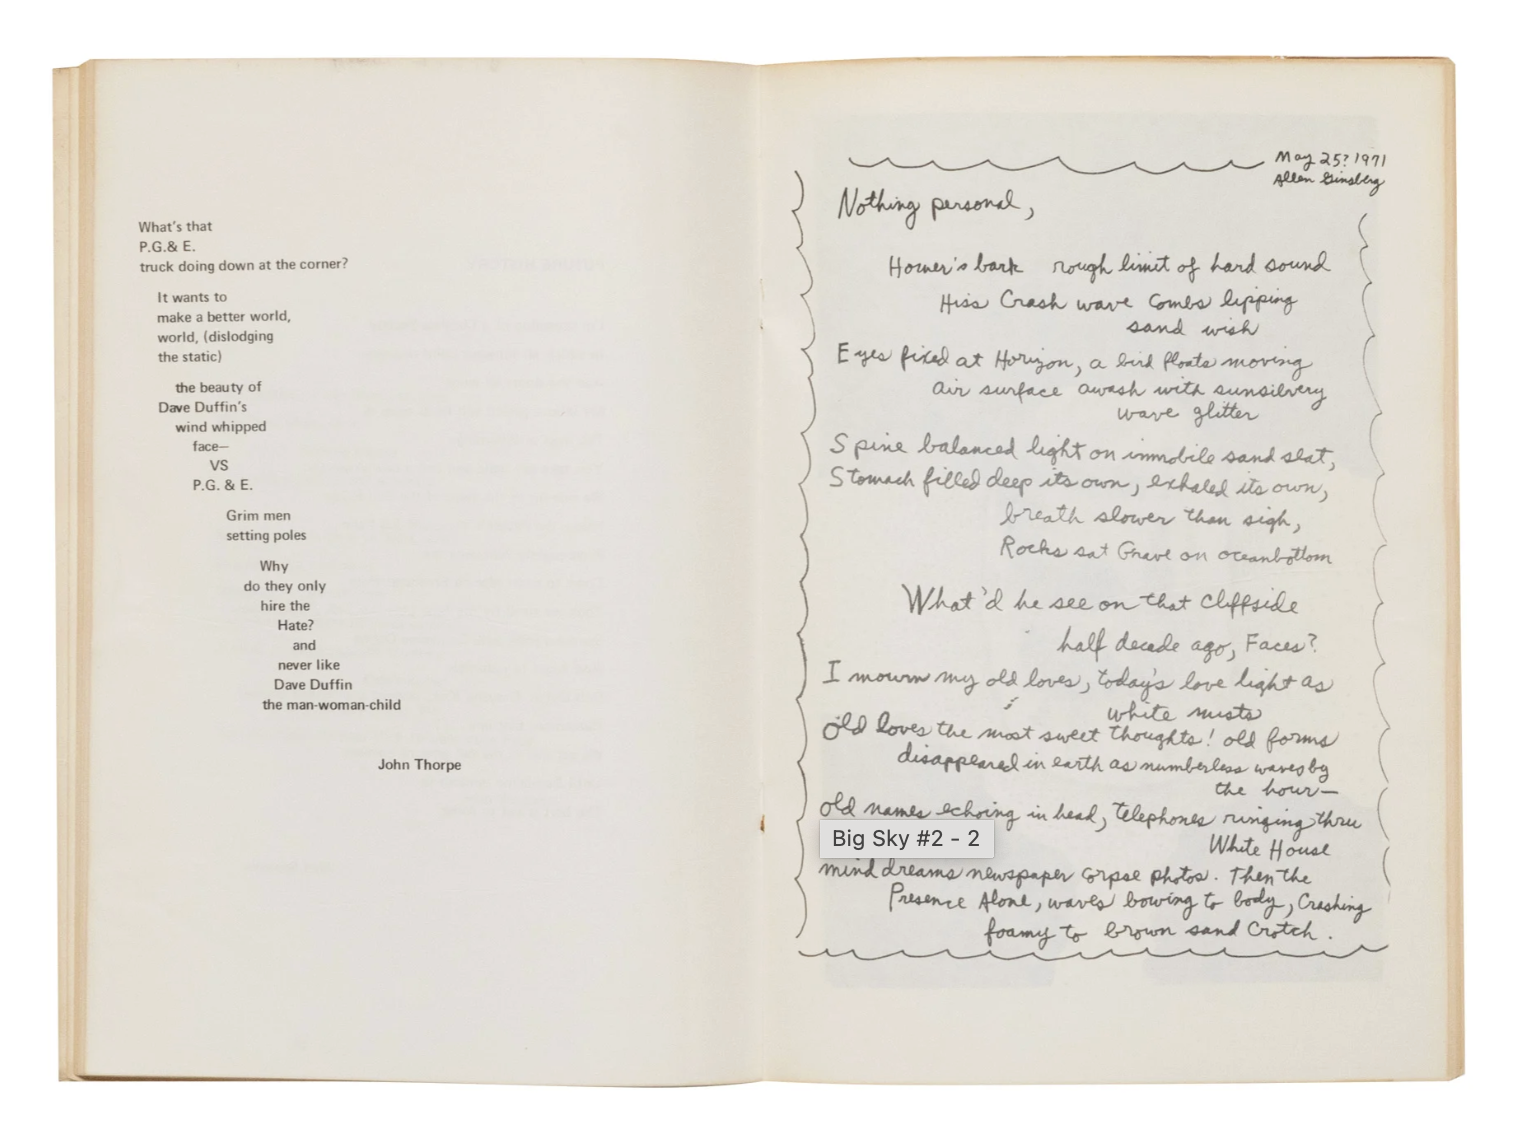 What's that
P.G.& E.
truck doing down at the corner?
It wants to
make a better world,
world, (dislodging
the static)
the beauty of
Dave Duffin's
wind whipped
face—
VS
P.G. & E.
Grim men
setting poles
Why
do they only
hire the
Hate?
and
never like
Dave Duffin
the man-woman-child
John Thorpe
May 25? 1971
Allen Ginsberg
Nothing personal,
Homer's bark rough limit of hard sound
Hiss Crash wave combs lipping
sand wish
Eyes fixed at Horizon, a bird floats moving
air surface awash with sunsilvery
wave glitter
Spine balanced light on immobile sand seat,
Stomach filled deep its own, exhaled its own,
breath slower than sigh,
Rocks sat Grave on oceanbottom
What'd he see on that Cliffside
half decade ago, Faces?
I mourn my old loves, today's love light as
white mists
old loves the most sweet thoughts! old forms
disappeared in earth as numberless waves by
the hour—
old names echoing in head, telephones ringing thru
White House
mind dreams newspaper corpse photos. Then the
Presence Alone, waves bowing to body, Crashing
foamy to brown sand Crotch.
Big Sky #2 - 2